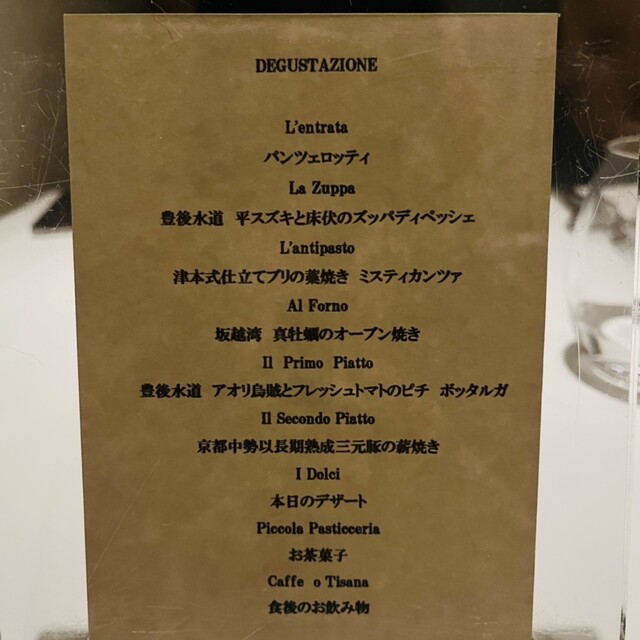 DEGUSTAZIONE
L'entrata
パンツェロッティ
La Zuppa
豊後水道 平スズキと床伏のズッパディペッシェ
L'antipasto
津本式仕立てブリの藁焼き ミスティカンツァ
Al Forno
坂越湾 真牡蠣のオーブン焼き
Il Primo Piatto
豊後水道 アオリ烏賊とフレッシュトマトのピチ ボッタルガ
Il Secondo Piatto
京都中勢以長期熟成三元豚の薪焼き
I Dolci
本日のデザート
Piccola Pasticceria
お茶菓子
Caffe o Tisana
食後のお飲み物